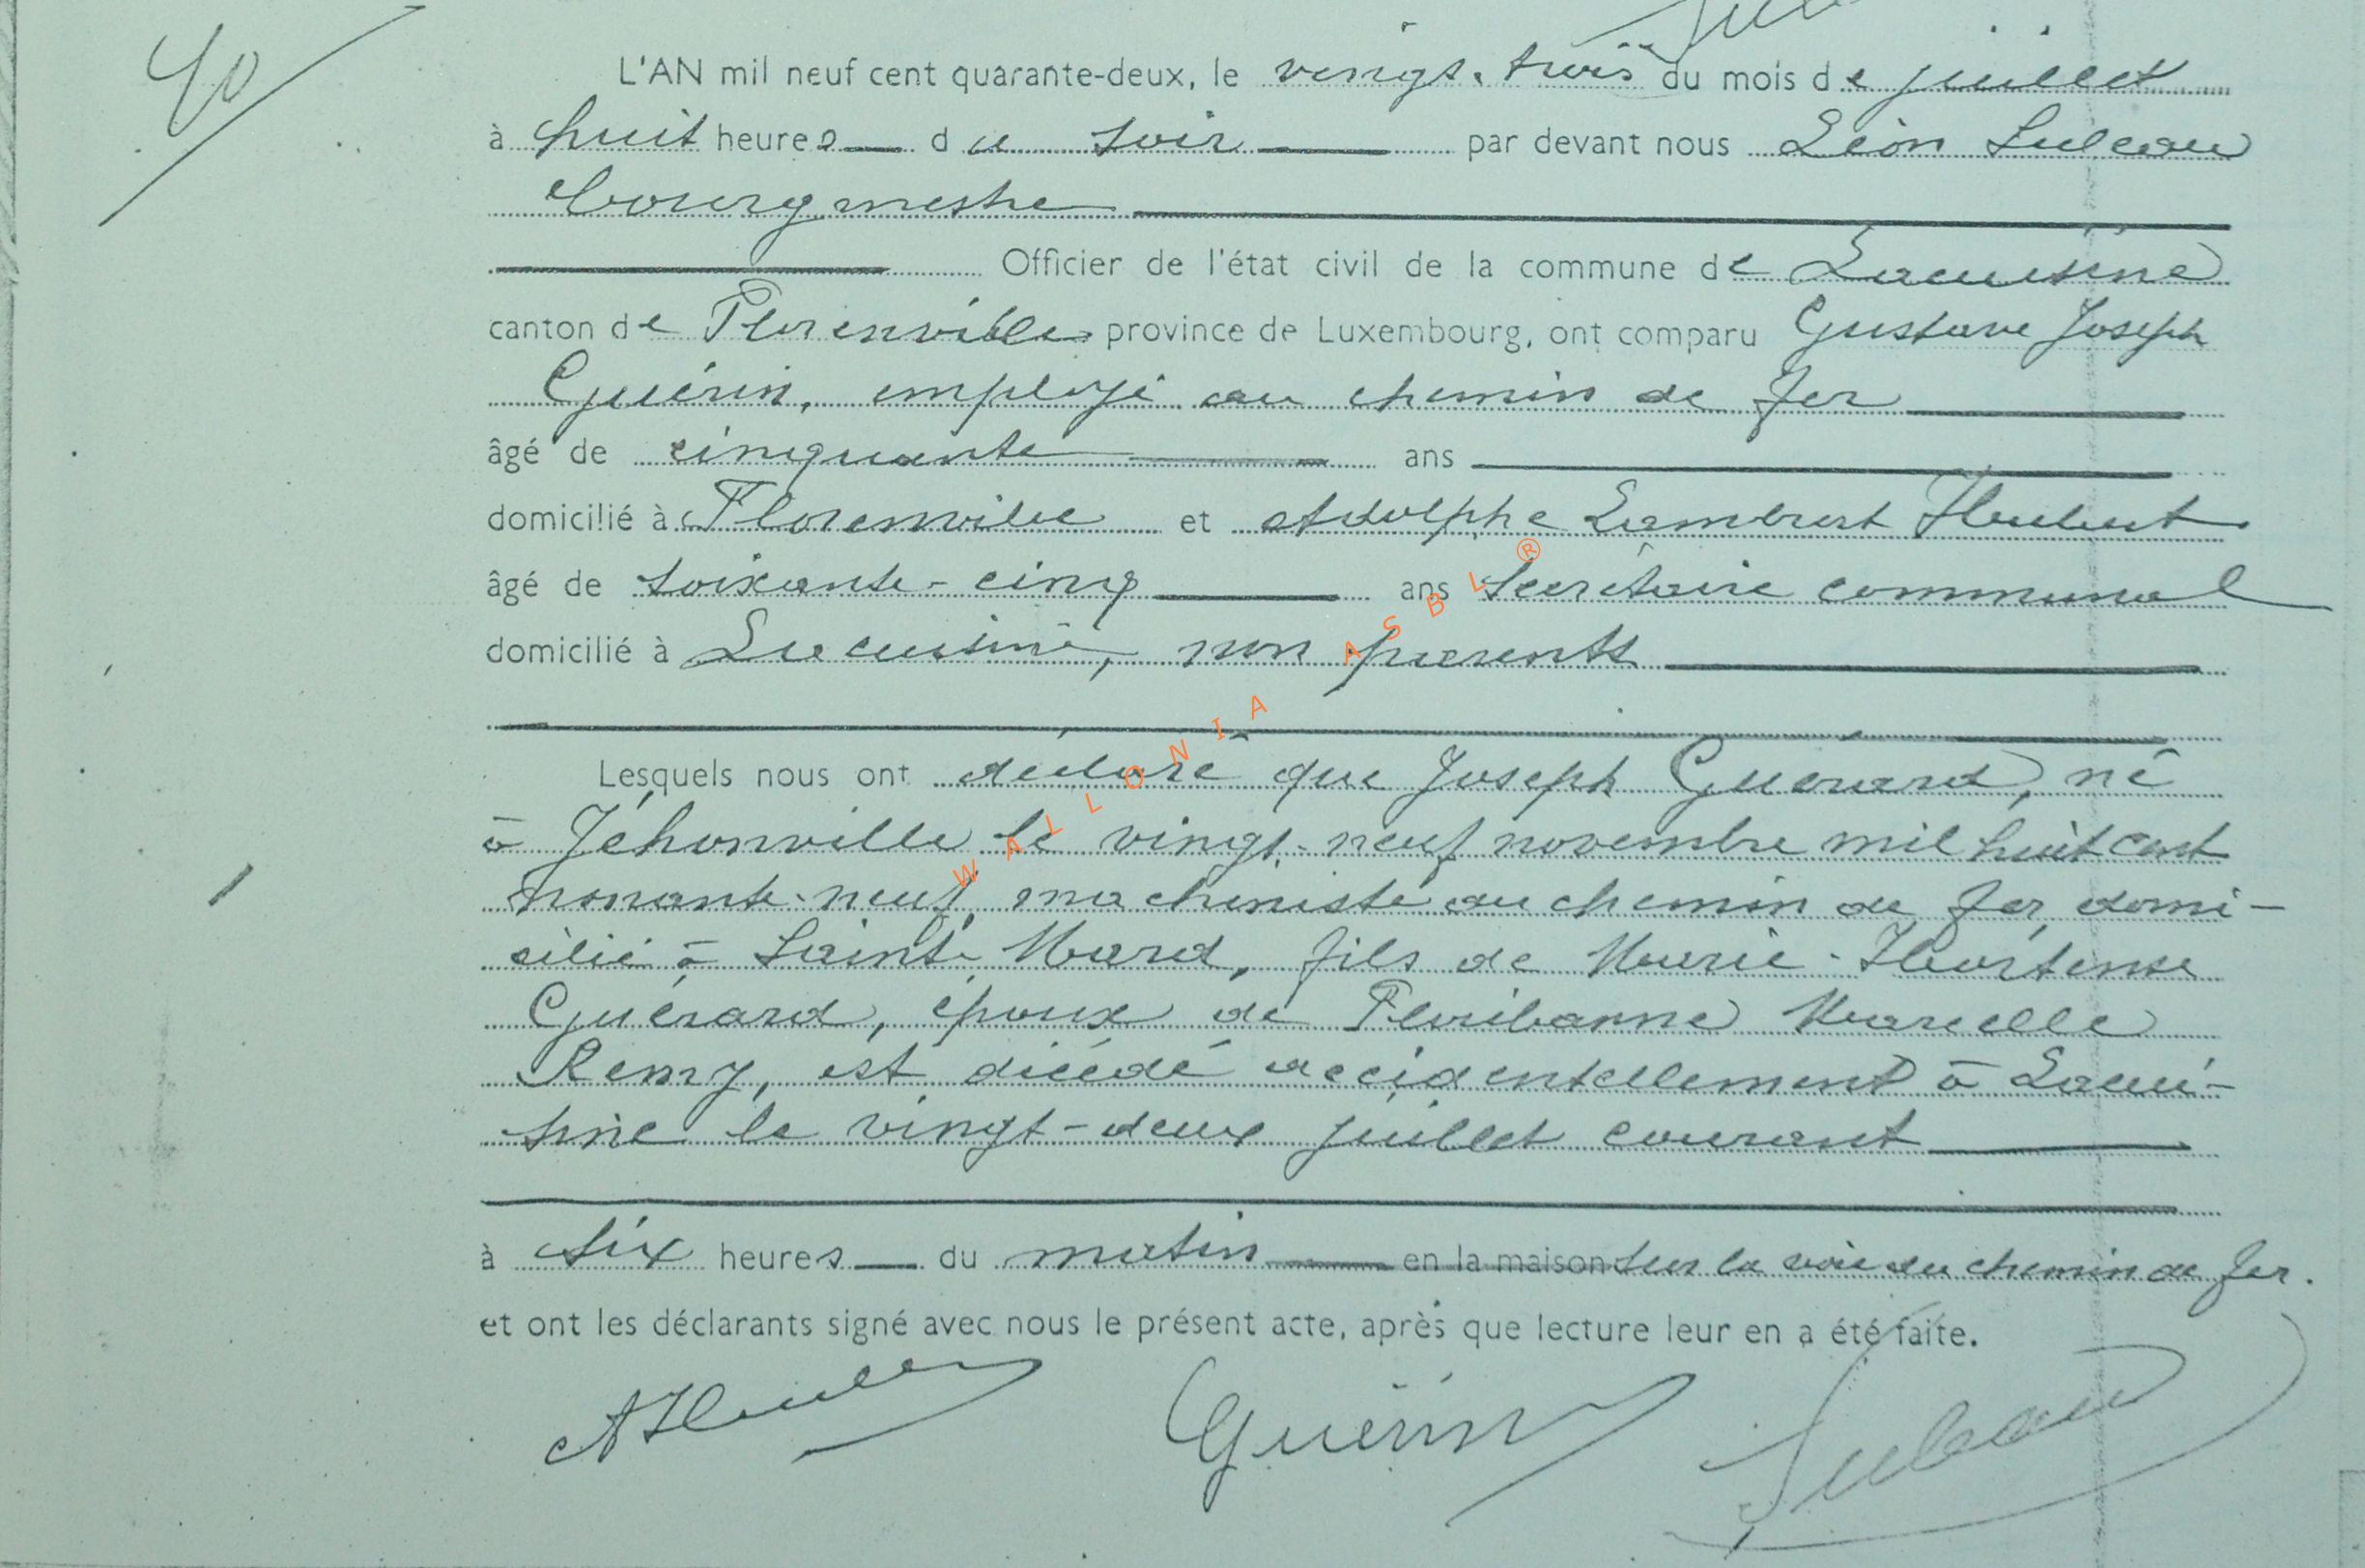 40
L'AN mil neuf cent quarante-deux, le vingt-trois du mois de juillet
à huit heures du soir par devant nous Léon
bourgmestre
Officier de l'état civil de la commune de Lacuisine
canton de Florenville province de Luxembourg, ont comparu Gustave Joseph
Guérin, employé au chemin de fer
âgé de cinquante ans
domicilié à Florenville et Adolphe Lambert Hubert
âgé de soixante-cinq ans secrétaire communal
domicilié à Lacuisine, non parents
Lesquels nous ont déclaré que Joseph Guérard, né
à Jéhonville le vingt-neuf novembre mil huit cent
nonante-neuf, machiniste au chemin de fer, domi-
cilié à Saint-Mard, fils de Marie-Hortense
Guérard, époux de Marcelle
Remy, est décédé accidentellement à Lacui-
sine le vingt-deux juillet courant
à six heures du matin en la maison sur la voie du chemin de fer.
et ont les déclarants signé avec nous le présent acte, après que lecture leur en a été faite.
Guérin
WALLONIA ASBL ®